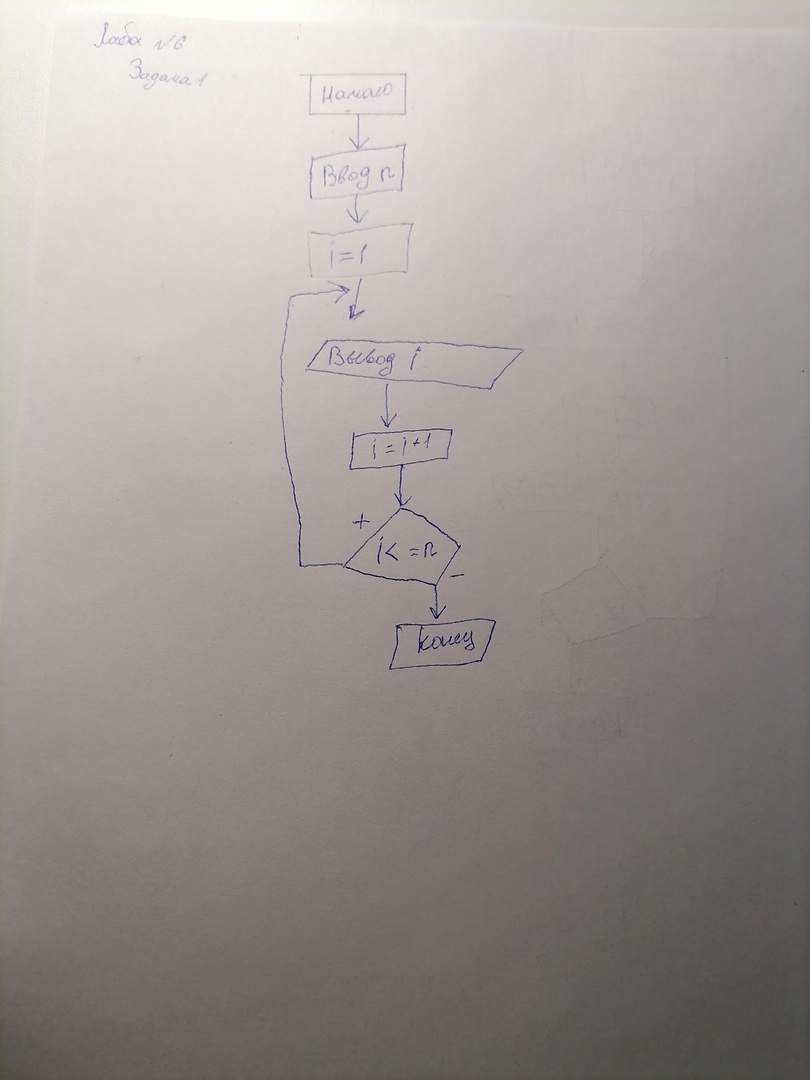 Лаба №6
Задача 1
Начало
Ввод n
i=1
Вывод i
i=i+1
+
i<=n
-
Конец